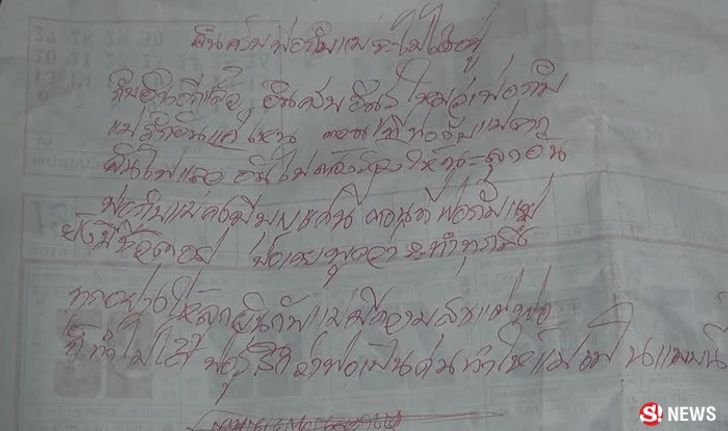 อันครับพ่อกับแม่จะไม่ได้อยู่
กับอันอีกแล้ว อันครับอันรู้ไหมว่าพ่อกับ
แม่รักอันแค่ไหน ตอนที่พ่อกับแม่จาก
อันไปแล้ว อันไม่ต้องร้องไห้นะลูกอัน
พ่อกับแม่คงมีบุญแค่นี้ ตอนที่พ่อกับแม่
ยังมีชีวิตอยู่ พ่อเคยพูดว่าจะทำทุกสิ่ง
ทุกอย่างให้ลูกอันกับแม่มีความสุขแต่พ่อ
ก็ทำไม่ได้ พ่อรู้สึกว่าพ่อเป็นคนทำให้แม่เป็นแบบนี้
S! NEWS